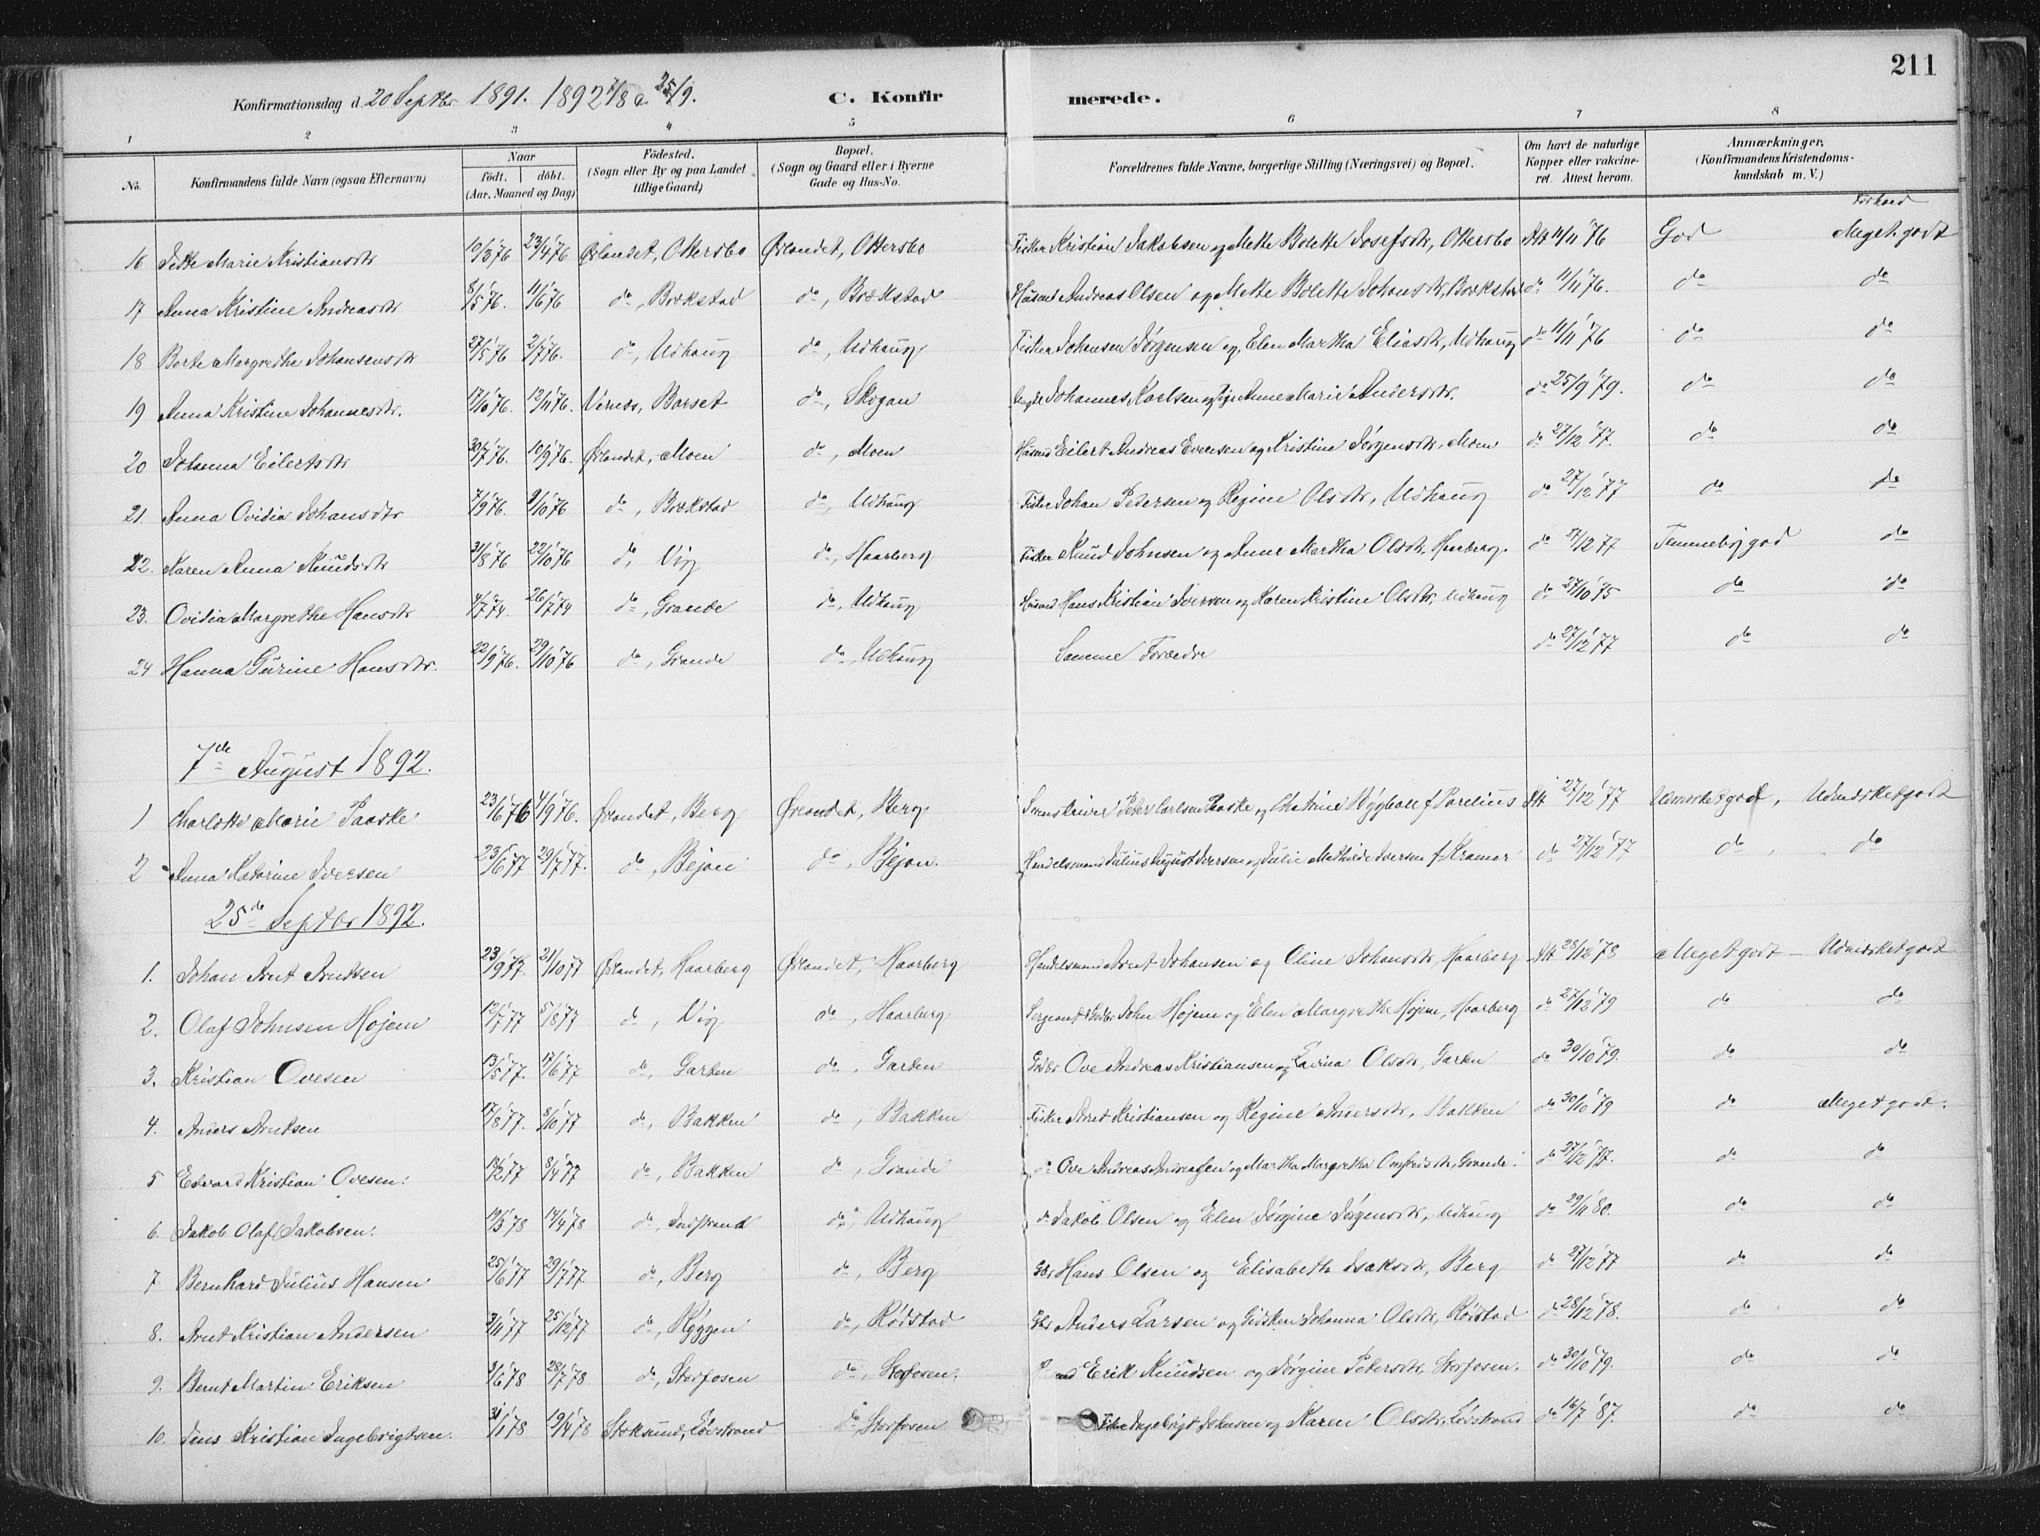 211
Konfirmationsdag d. 20 Septbr 1891. 1892 7/8 & 25/9. C. Konfirmerede.
1 2 3 4 5 6 7 8
No. Konfirmandens fulde Navn (ogsaa Efternavn) Naar födt. döbt. (Aar, Maaned og Dag) Födested. (Sogn eller By og paa Landet tillige Gaard) Bopæl. (Sogn og Gaard eller i Byerne Gade og Hus-No. Forældrenes fulde Navne, borgerlige Stilling (Næringsvei) og Bopæl. Om havt de naturlige Kopper eller vakcineret. Attest herom. Anmærkninger. (Konfirmandens Kristendomskundskab m. V.)
Forhold
16 Marie Kristiansdtr 10/3 76 23/4 76 Ørlandet, Ottersbo Ørlandet, Ottersbo Fisker Kristian Jakobsen og Mette Bolette Josefsdtr, Ottersbo Att 11/11 '76 God Meget godt
17 Anna Kristine Andreasdtr 8/5 76. 11/6 76 do, Brekstad do, Brekstad Husmd Andreas Olsen og Mette Bolette Johansdtr, Brekstad do 11/11 '76. do do
18 Berte Margrethe Johansensdtr 27/5 76 2/7 76. do, Udhaug do, Udhaug Fisker Johansen Jørgensen og Elen Martha Eliasdtr, Udhaug do 11/11 '76 do do
19 Anna Kristine Johannesdtr. 17/10 76. 12/11 76. Vernes, Barset do, Skogan Johannes Karlsen og Pige Anne Marie Andersdtr. do 25/9 '79. do do
20 Johanna Eilertsdtr 30/7 76. 10/9 76. Ørlandet, Moen do, Moen Husmd Eilert Andreas Evensen og Kristine Jørgensdtr, Moen do 27/12 '77. do do
21. Anna Ovidia Johansdtr 7/9 76. 8/10 76 do, Brekstad do, Udhaug Fisker Johan Petersen og Regine Olsdtr, Udhaug do 27/12 '77 do do
22. Karen Anna Knudsdtr 31/8 76 22/10 76 do, Vig do, Haarberg Fisker Knud Johnsen og Anne Martha Olsdtr, Haarberg. do 27/12 77 Temmelig god do
23. Ovidia Margrethe Hansdtr 4/7 74. 26/7 74 do, Grande do, Udhaug Husmd Hans Kristian Iversen og Karen Kristine Olsdtr, Udhaug do 27/10 '75 do do
24 Hanna Gurine Hansdtr. 22/9 76. 29/10 76 do, Grande do, Udhaug Samme Forældre do 27/12 '77 do do
7de August 1892.
1 Charlotte Marie Paaske 23/6 76 4/9 76. Ørlandet, Berg Ørlandet, Berg Peter Carlsen Paaske og f Parelius Att 27/12 '77 Udmerket god, Udmerket godt
2 Anna Katarine Iversen 23/6 77 29/7 77. do, Bejan do, Bejan. Handelsmand Julius August Iversen og Julie Mathilde Iversen f Kramer do 27/12 '77 do do
25de Septbr 1892.
1. Johan Arnt Arntsen 23/9 77. 21/10 77 Ørlandet, Haarberg Ørlandet, Haarberg Handelsmand Arnt Johansen og Oline Johansdtr, Haarberg Att 28/12 '78 Meget godt Udmerket godt
2. Olaf Johnsen Højem 12/7 77 5/8 77 do, Vig do, Haarberg Sergeant John Højem og Elen Margrethe Højem, Haarberg do 27/12 '79 do do
3. Kristian Ovesen 13/5 77. 17/6 77 do, Garten do, Garten Ove Andreas Kristiansen og Lavina Olsdtr, Garten do 30/10 '79. do do
4. Anders Arntsen 17/8 77. 8/10 77 do, Bakken do, Bakken Fisker Arnt Kristiansen og Regine Andersdtr, Bakken do 30/10 '79 do Meget godt.
5 Edvard Kristian Ovesen. 8/4 77 do, Bakken do, Grande do Ove Andreas Andreassen og Martha Margretha dtr, Grande. do 27/12 77. do do
6. Jakob Olaf Jakobsen. 19/3 78 14/4 78 do, Indstrand do, Udhaug do Jakob Olsen og Elen Jørgine Jørgensdtr, Udhaug do 29/11 80. do do
7 Bernhard Julius Hansen 25/6 77 29/7 77 do, Berg do, Berg Gbr Hans Olsen og Elisabeth Isaksdtr, Berg do 27/12 77 do do
8. Arnt Kristian Andersen 3/11 77 25/12 77 do, Ryggen do, Rødstad Gbr Anders Larsen og Gidsken Johanna Olsdtr, Rødstad do 28/12 '78. do do
9. Bernt Martin Eriksen 3/6 78 28/7 78 do, Storfosen do, Storfosen. Erik Knudsen og Jørgine Petersdtr, Storfosen. do 30/10 '79. do do
10. Jens Kristian Ingebrigtsen. 31/1 78 19/4 78 Stoksund, Løvstrand do Storfosen Fisker Ingebrigt Johnsen og Karen Olsdtr, Løvstrand do 16/7 '87. do do